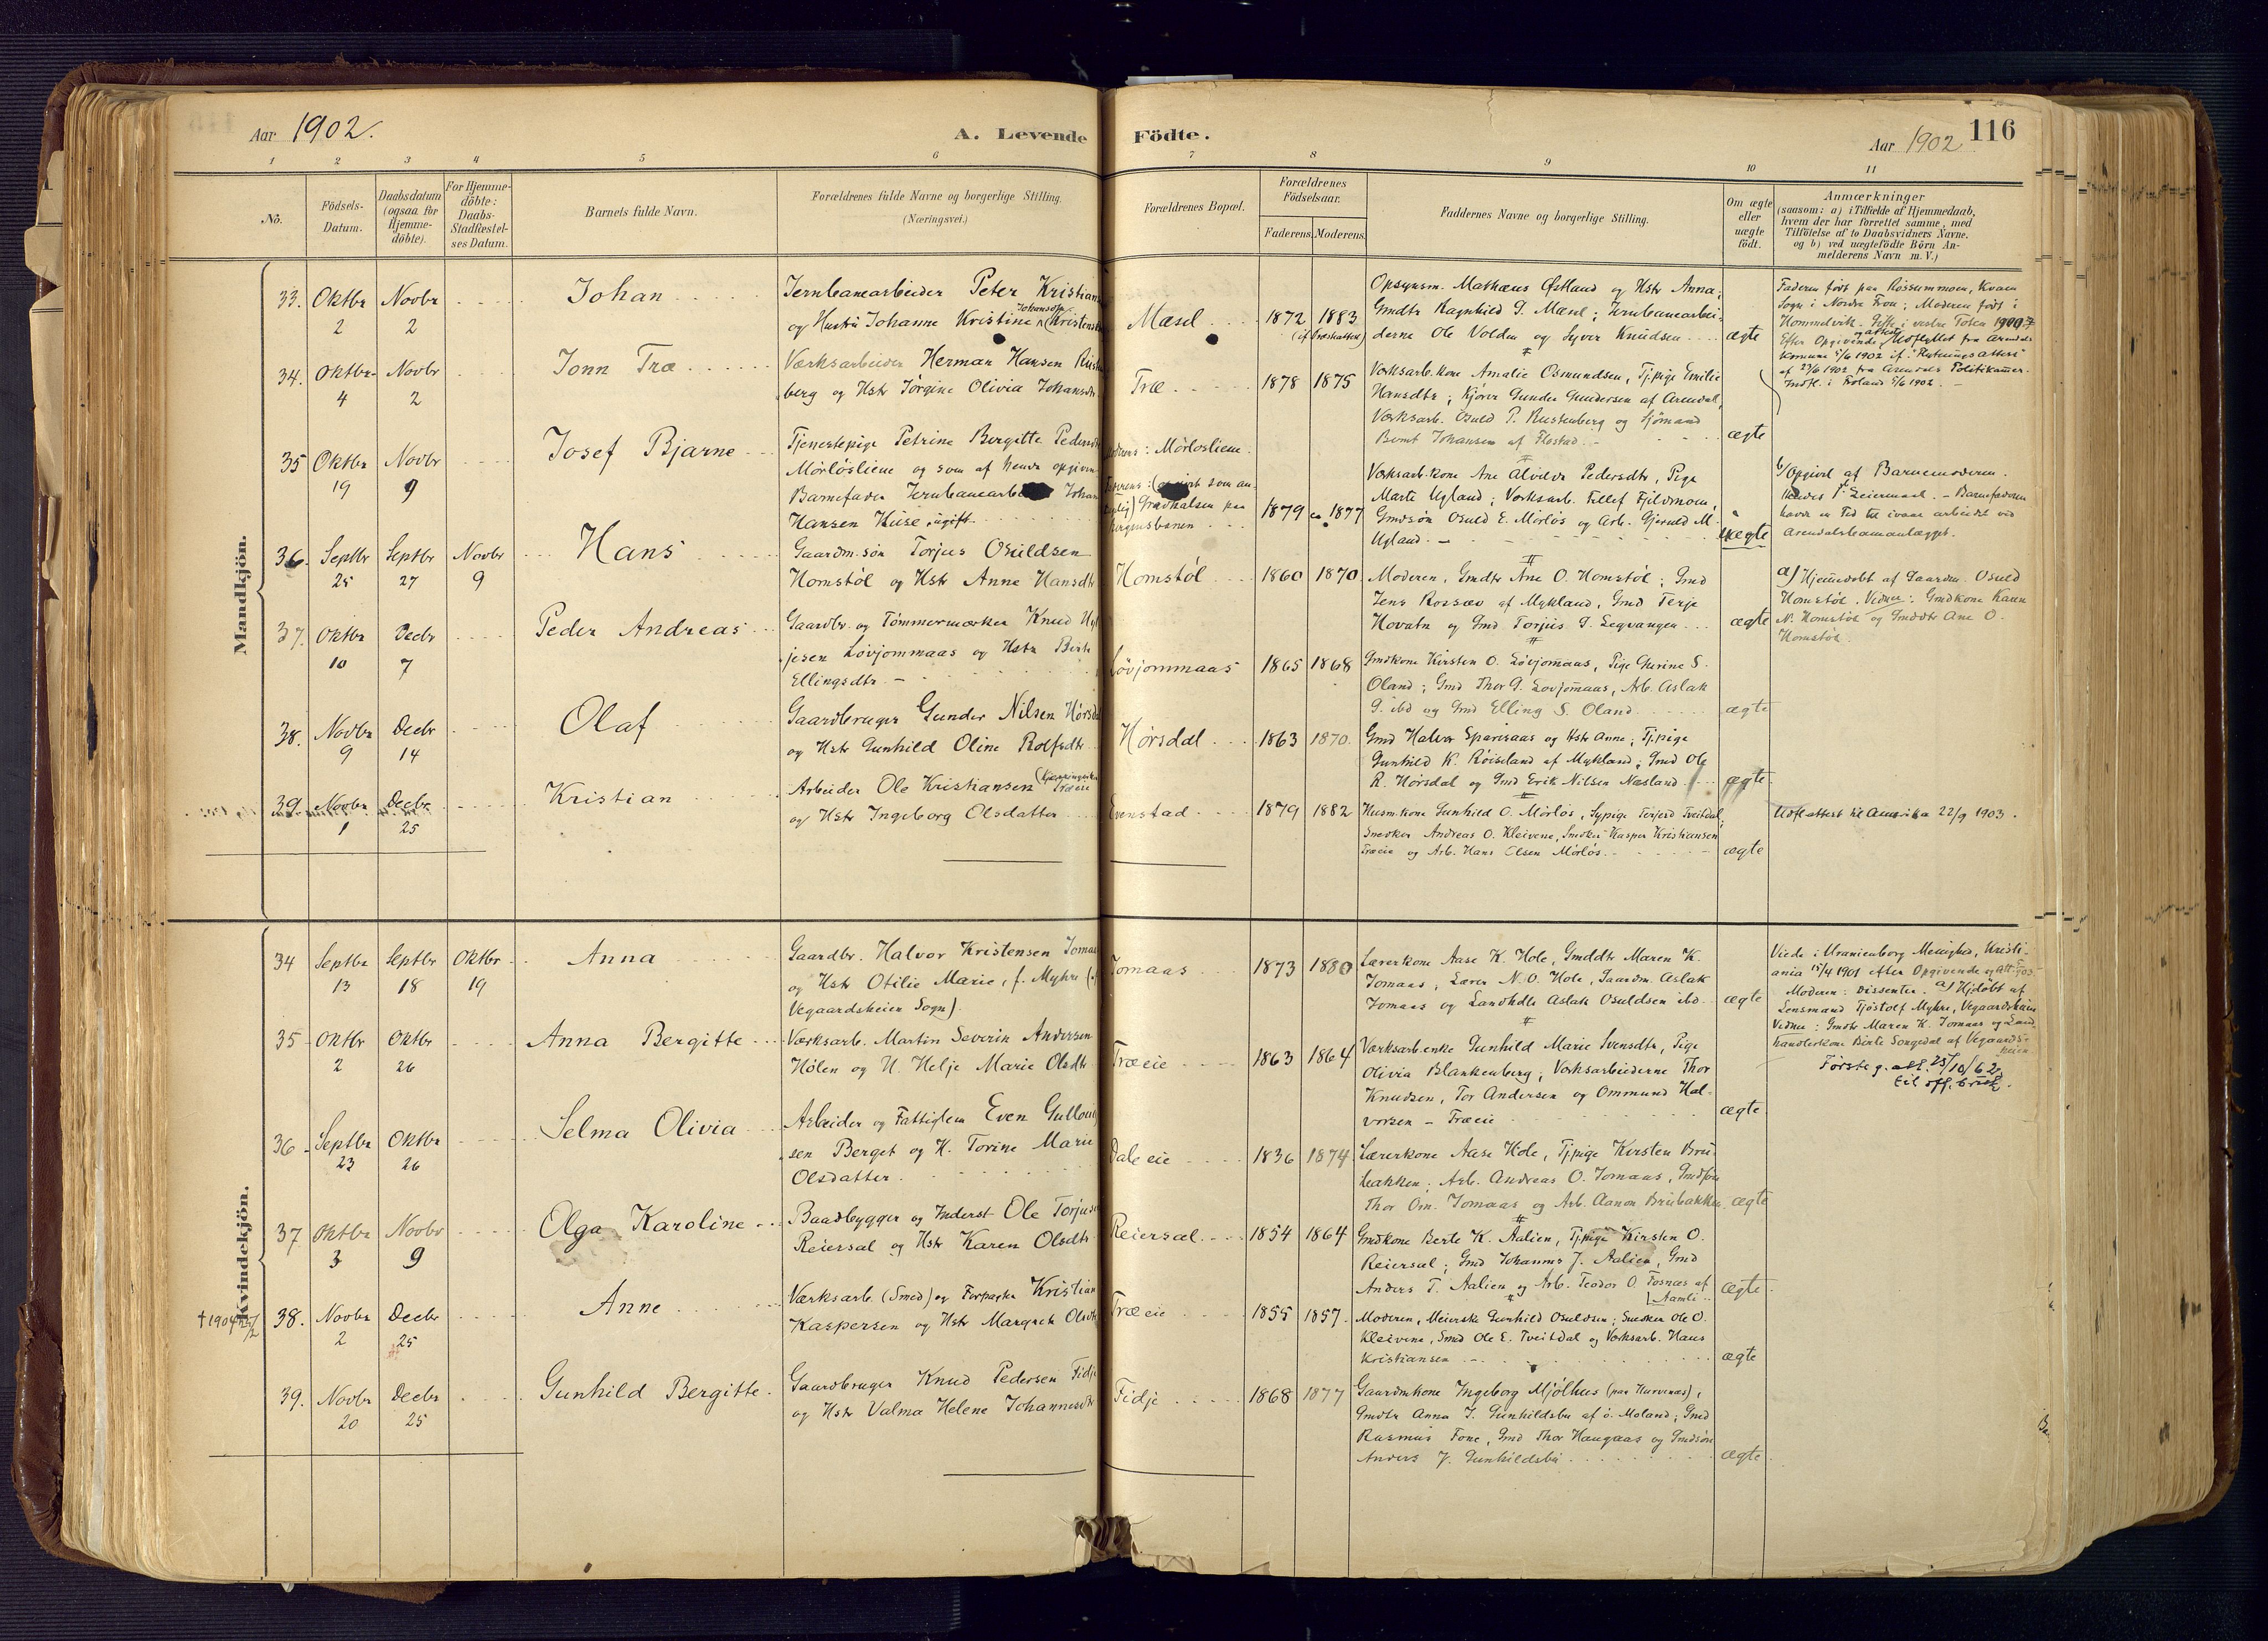 Aar 1902.
A. Levende Födte.
Aar 1902 116
1 2 3 4 5 6 7 8 9 10 11
No.
Födsels-
Datum.
Daabsdatum
(ogsaa for
Hjemme-
döbte).
For Hjemme-
döbte:
Daabs-
Stadfæstel-
ses Datum.
Barnets fulde Navn.
Forældrenes fulde Navne og borgerlige Stilling.
(Næringsvei.)
Forældrenes Bopæl.
Forældrenes
Födselsaar.
Faderens. Moderens.
Faddernes Navne og borgerlige Stilling.
Om ægte
eller
uægte
födt.
Anmærkninger
(saasom: a) i Tilfælde af Hjemmedaab,
hvem der har forrettet samme, med
Tilföielse af to Daabsvidners Navne.
og b) ved uægtefödte Börn An-
melderens Navn m. V.)
Mandkjön.
33. Oktbr 2 Novbr 2 Johan
Jernbanearbeider Peter Kristian
og Hustru Johanne Kristine Johansdtr (Kristens
Mæsel 1872 1883
Opsynsm. Mathæus Østlund og Hstr Anna;
Gmdtr Ragnhild G. Mæsel; Jernbanearbei-
derne Ole Volden og Syver Knudsen
ægte
Faderen født paa Rossummoen, Kvam
Sogn i Nordre Fron; Moderen født i
Hommelvik. Gifte i vestre Toten
Efter Opgivende, Udflyttet fra Arendals
Kommune 5/6 1902 if. "Flytningsattest"
af 27/6 1902 fra Arendals Politikamer.
Indfl. i Froland 5/6 1902.
34. Oktbr 4 Novbr 2 Jonn Træ
Værksarbeider Herman Hansen Rust
berg og Hstr Jørgine Olivia Johansdtr
Træ 1878 1875
Værksarb.kone Amalie Osmundsen, Tj.pige Emilie
Hansdtr; Kjører Gunder Gundersen af Arendal,
Værksarb. Osuld P. Rustenberg og Sjømand
Bernt Johansen af Flostad.
ægte
35 Oktbr 19 Novbr 9 Josef Bjarne
Tjenestepige Petrine Bergitte Pedersdtr
Mørløsliene og som af hende opgiven
Barnefader Jernbanearbeider Johan
Hansen Huse, ugift
Moderens: Mørlosliene.
Faderens: (opgivet som an-
Gravhalsen paa
Bergensbanen
1879 ca. 1877
Værksarb.kone Ane Alvilde Pedersdtr, Pige
Marte Ugland; Værksarb. Tellef Fjeldmoen,
Gmdsøn Osuld E. Mørløs og Arb. Gjeruld M.
Ugland.
uægte
b/Opgivet af Barnemoderen.
Hendes 1ste Leiermaal. – Barnefaderen
havde en Tid til ivaar arbeidet ved
Arendalsbaneanlægget.
36. Septbr 25 Septbr 27 Novbr 9 Hans
Gaardm.søn Torjus Osuldsen
Homstøl og Hstr Anne Hansdtr
Homstøl 1860 1870
Moderen, Gmdtr Ane O. Homstøl; Gmd
Jens Rossæv af Mykland, Gmd Terje
Hovatn og Gmd Torjus G. Legvangen
ægte
a) Hjemmedøbt af Gaardm. Osuld
Homstøl. Vidner: Gmdkone Karen
N. Homstøl og Gmddtr Ane O.
Homstøl.
37. Oktbr 10 Decbr 7 Peder Andreas
Gaardbr. og Tømmermærker Knud
jesen Løvjommaas og Hstr Birte
Ellingsdtr. –
Løvjommaas 1865 1868
Gmdkone Kirsten O. Løvjomaas, Pige Gurine S.
Oland; Gmd Thor G. Lovjomaas, Arb. Aslak
G. ibd og Gmd Elling S. Oland
ægte
38. Novbr 9 Decbr 14 Olaf
Gaardbruger Gunder Nilsen Hørsdal
og Hstr Gunhild Oline Rolfsdtr
Hørsdal 1863 1870.
Gmd Halvor Sparsaas og Hstr Anne; Tj.pige
Gunhild K. Røiseland af Mykland; Gmd Ole
R. Hørsdal og Gmd Erik Nilsen Næsland
ægte
39. Novbr 1 Decbr 25 Kristian
Arbeider Ole Kristiansen Træeie
og Hstr Ingeborg Olsdatter
Evenstad 1879 1882
Husm.kone Gunhild O. Mørløs, Sypige Torjerd Tveitdal;
Snedker Andreas O. Kleivene, Smeder Kasper Kristiansen
Træeie og Arb. Hans Olsen Mørløs.
ægte
Udfl.attest til Amerika 22/9 1903.
Kvindekjön.
34 Septbr 13 Septbr 18 Oktbr 19 Anna
Gaardbr. Halvor Kristensen Jomaas
og Hstr Otilie Marie, f. Myhre
Vegaardsheien Sogn).
Jomaas 1873 1880
Lærerkone Aase K. Hole, Gmddtr Maren K.
Jomaas, Lærer N. O. Hole, Gaardm. Aslak
Jomaas og Landhdlr Aslak Osuldsen ibd.
ægte
Viede i Uranienborg Menighed, Kristi-
ania 15/4 1901 efter Opgivende og Att.
Moderen: Dissenter. a) Hjdøbt af
Lensmand Tjøstolf Myhre, Vegaardsheien
Vidner: Gmdtr Maren K. Jomaas og Land-
handlerkone Birte Songedal af Vegaards-
heien.
Første g. att. 25/10/62
til off. bruk.
35 Oktbr 2 Oktbr 26 Anna Bergitte
Værksarb. Martin Severin Andersen
Hølen og H. Helje Marie Olsdtr
Træeie 1863 1864
Værksarb.enke Gunhild Marie Svensdtr, Pige
Olivia Blankenberg; Værksarbeiderne Thor
Knudsen, Tor Andersen og Ommund Hal-
vorsen – Træeie
ægte.
36 Septbr 23 Oktbr 26 Selma Olivia
Arbeider og Fattiglem Even Gullov
sen Berget og H. Torine Marie
Olsdatter.
Dale eie 1836 1874
Lærerkone Aase Hole, Tj.pige Kirsten Bru-
bakken. Arb. Andreas O. Jomaas, Gmdsøn
Thor Om. Jomaas og Arb. Aanon Brubakken
ægte
37 Oktbr 3 Novbr 9 Olga Karoline
Baadbygger og Inderst Ole Torjusen
Reiersæl og Hstr Karen Olsdtr
Reiersæl 1854 1864
Gmdkone Berte K. Aalien, Tj.pige Kirsten O.
Reiersæl; Gmd Johannes J. Aalien, Gmd
Anders T. Aalien og Arb. Teodor O. Fosnæs af
Aamli
ægte
† 1904
38. Novbr 2 Decbr 25 Anne
Værksarb. (Smed) og Forpagter Kristian
Kaspersen og Hstr Margrete Olsdtr
Træeie 1855 1857.
Moderen, Meierske Gunhild Osuldsen; Snedker Ole O.
Kleivene, Smed Ole E. Tveitdal og Værksarb. Hans
Kristiansen
ægte
39. Novbr 20 Decbr 25 Gunhild Bergitte
Gaardbruger Knud Pedersen Fidje
og Hstr Valma Helene Johannesdtr
Fidje 1868 1877
Gaardmkone Ingeborg Mjølhus (paa Hurvenæs),
Gmdtr Anna J. Gunhildsbu af ø. Moland; Gmd
Rasmus Fone, Gmd Thor Haugaas og Gmdsøn
Anders J. Gunhildsbu
ægte